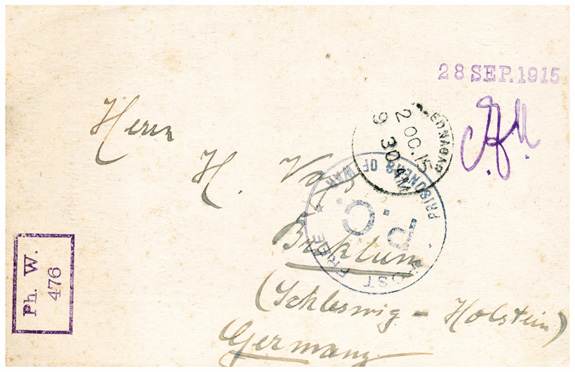 28 SEP. 1915
Herrn
H. Voss
EDNAGAR
2 OC. 15
9 30 AM
PRISONERS OF WAR
P.C.
POST FREE
Breklum
(Schleswig - Holstein)
Germany
Ph. W.
476